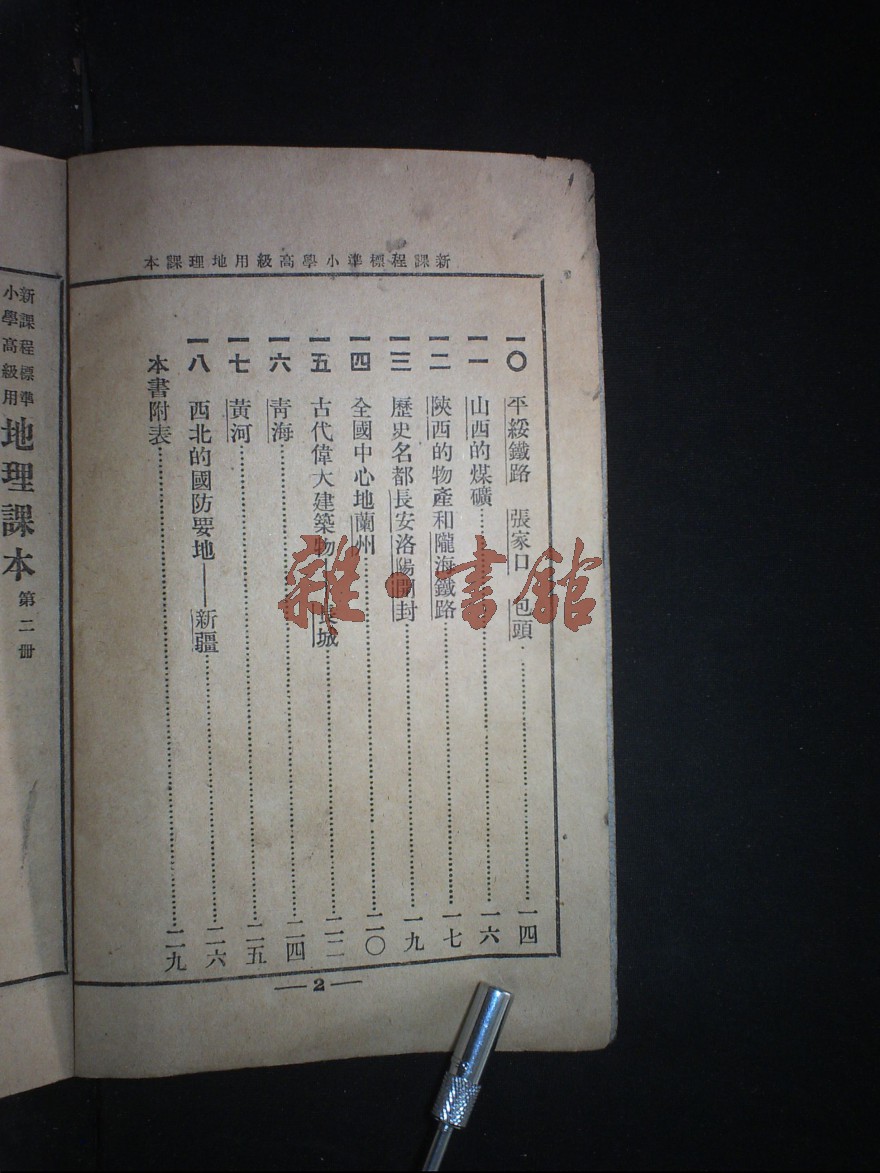 新課程標準小學高級用地理課本
一〇 平綏鐵路 張家口 包頭……一四
一一 山西的煤礦……一六
一二 陝西的物產和隴海鐵路……一七
一三 歷史名都長安洛陽開封……一九
一四 全國中心地蘭州……二〇
一五 古代偉大建築物——長城……二二
一六 青海……二四
一七 黃河……二五
一八 西北的國防要地——新疆……二六
本書附表……二九
—2—
新課程標準
小學高級用
地理課本 第二冊
雜·書館